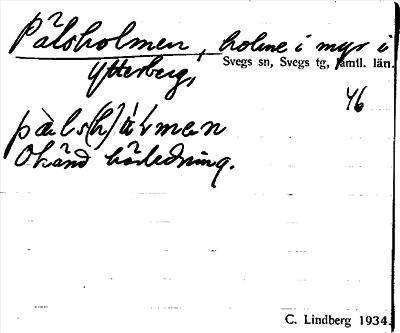 Pålsholmen, holme i myr i
Ytterberg,
Svegs sn, Svegs tg, Jämtl. län.
46
Okänd härledning.
C. Lindberg 1934.